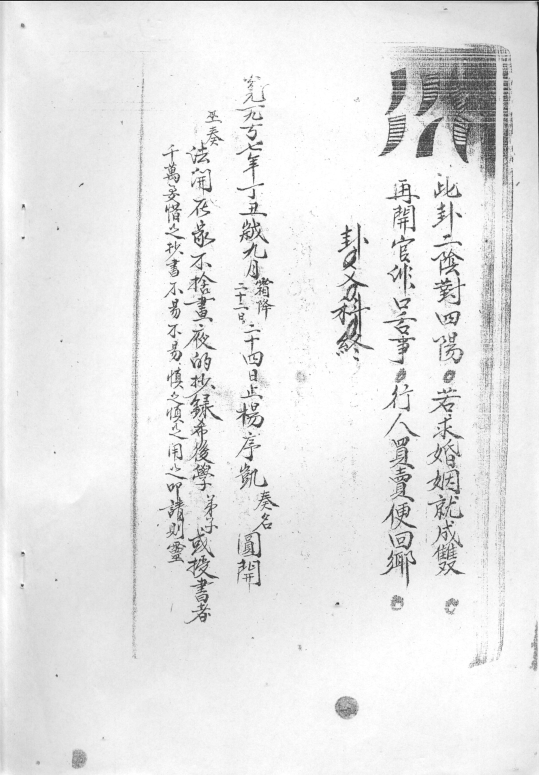 此卦二陰對四陽。若求婚姻就成雙。
再開官訟口舌事。行人買賣便回鄉。
卦文科終
公元一九百七年丁丑歲九月霜降二十二日二十四日止楊序凱奏名圓開
巫奏法開在家不捨晝夜的抄錄希後學弟子或授書者
千萬妥惜之抄書不易不易慎之慎之用之叩請則靈